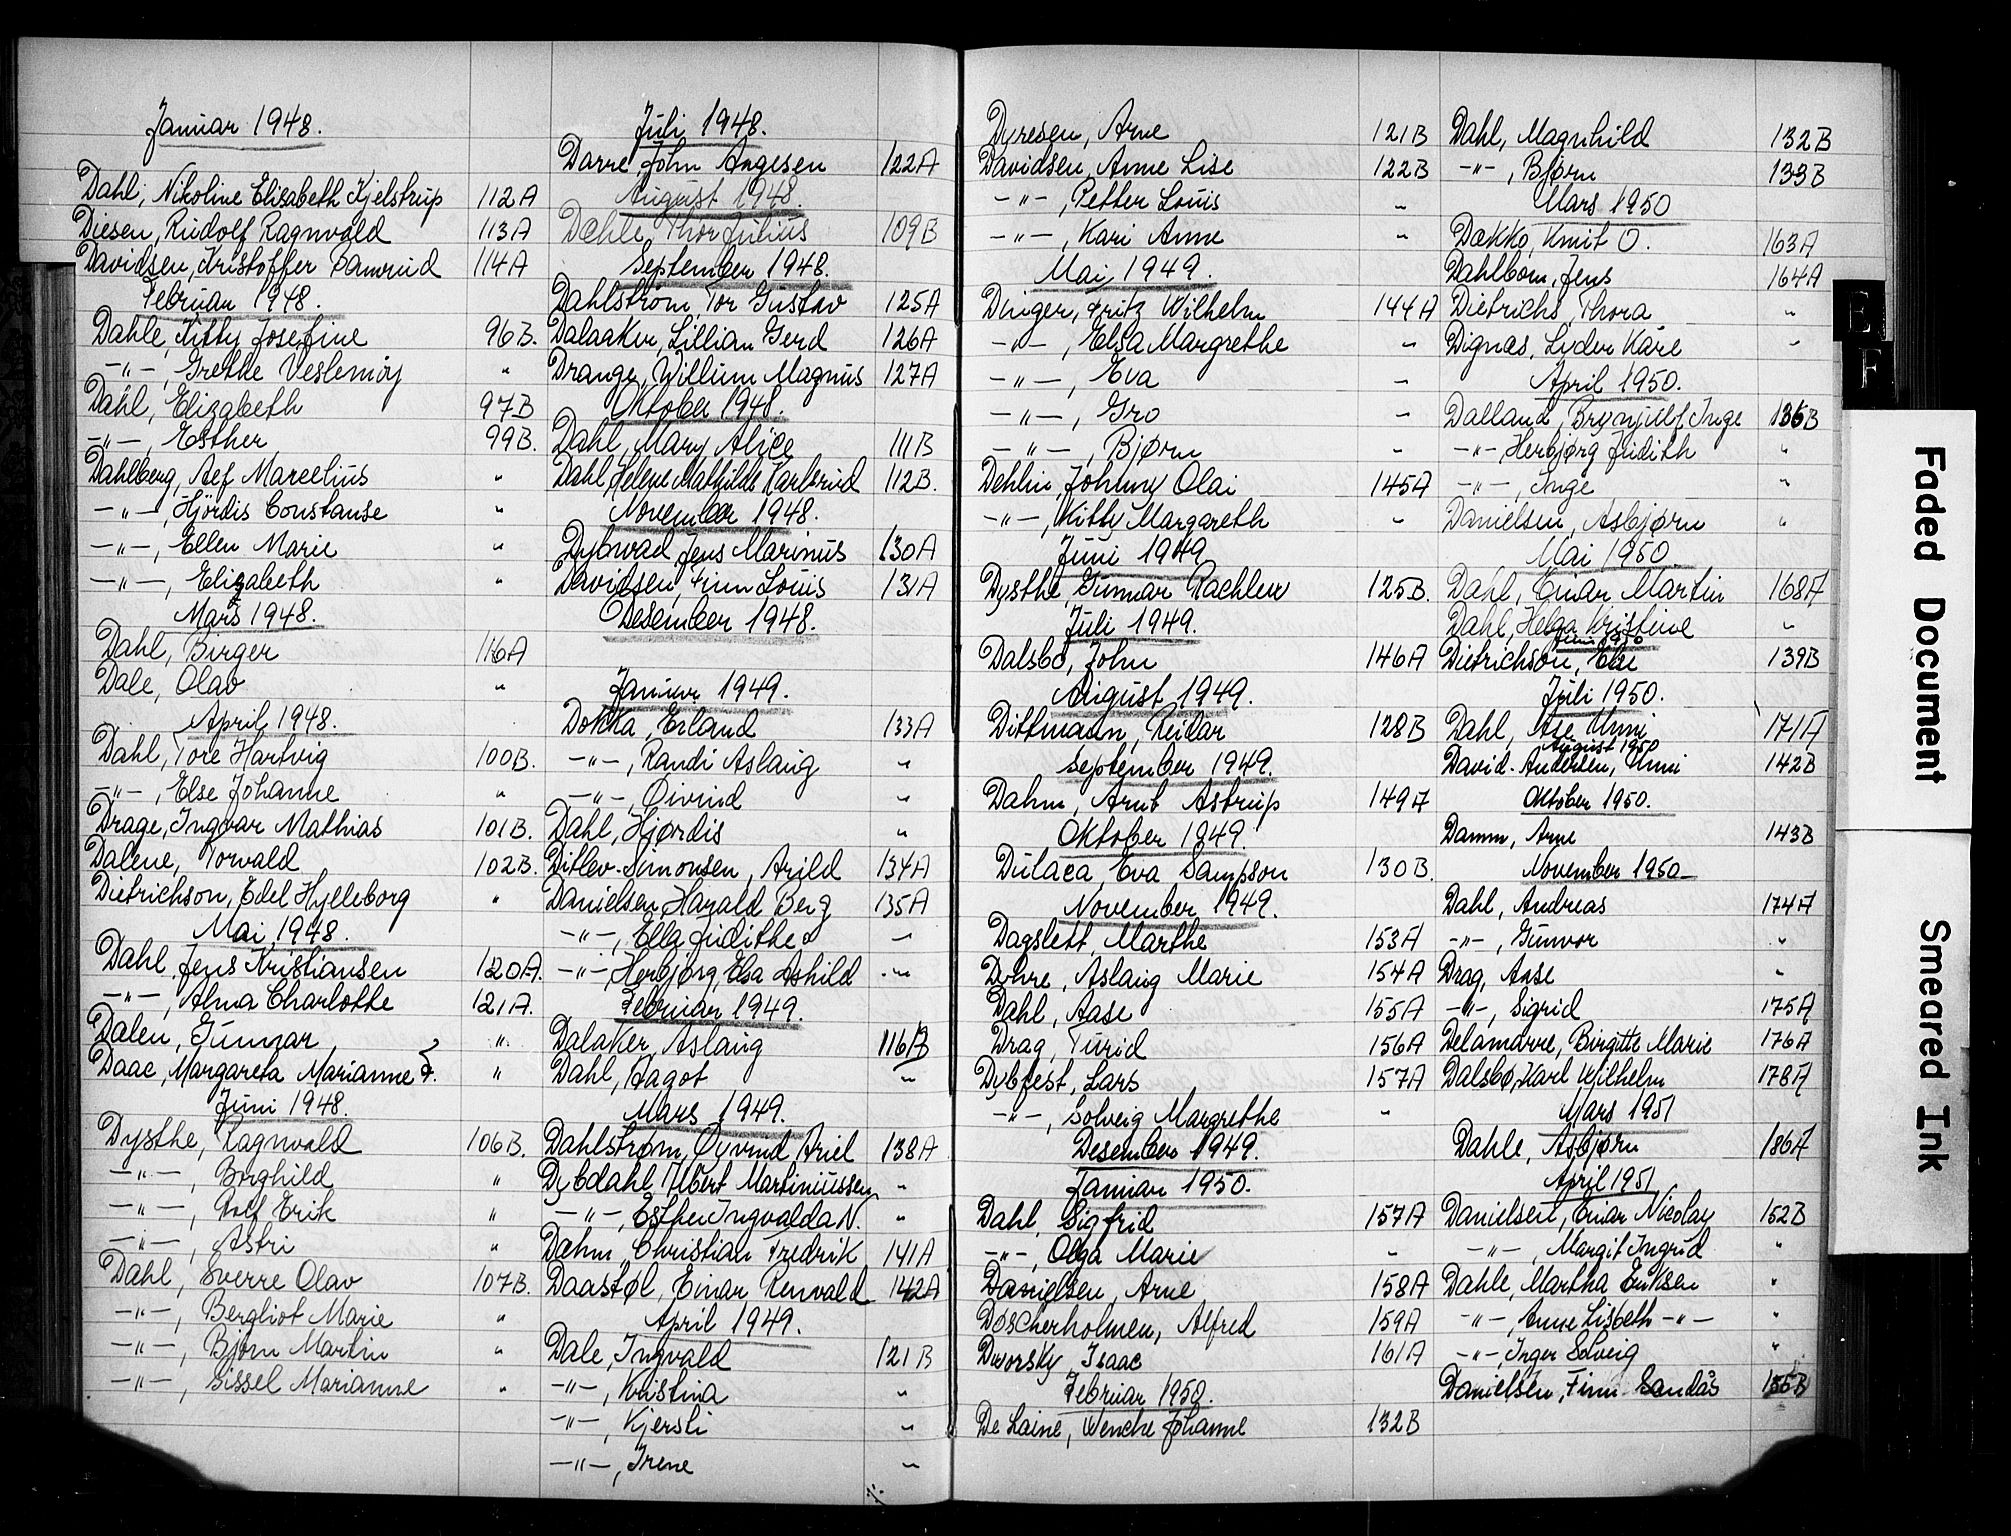 Januar 1948.
Dahl, Nikoline Elisabeth Kjelstrup 112A
Diesen, Rudolf Ragnvald 113A
Davidsen, Kristoffer 114A
Februar 1948.
Dahle, Kitty Josefine 96B.
-"-, Grethe Veslemöy "
Dahl, Elizabeth 97B
-"-, Esther 99B.
Dahlberg, Aef Marcelius "
-"-, Hjördis Constanse "
-"-, Ellen Marie "
-"-, Elizabeth "
Mars 1948.
Dahl, Birger 116A
Dale, Olav "
April 1948.
Dahl, Tore Hartvig 100B.
-"-, Else Johanne "
Drage, Ingvar Mathias 101B.
Dalene, Torvald 102B.
Dietrichson, Edel Hylleborg "
Mai 1948.
Dahl, Jens Kristiansen 120A.
-"-, Alma Charlotte 121A.
Dalen, Gunnar "
Daae, Margareta Marianne F. "
Juni 1948.
Dysthe, Ragnvald 106B.
-"-, Borghild "
-"-, Rolf Erik "
-"-, Astri "
Dahl, Sverre Olav 107B.
-"-, Bergliot Marie "
-"-, Bjørn Martin "
-"-, Sissel Marianne "
Juli 1948.
Darre, John Angesen 122A
August 1948.
Dæhle, Thor Julius 109B
September 1948.
Dahlstrøm, Tor Gustav 125A
Dalaaker, Lillian Gerd 126A
Drange, Willum Magnus 127A
Oktober 1948.
Dahl, Mary Alice 111B
Dahl, Helene Mathilde Karlsrud 112B.
November 1948.
Dybwad, Jens Marinus 130A
Davidsen, Finn Louis 131A
Desember 1948.
Januar 1949.
Dokka, Erland 133A
-"-, Randi Aslaug "
-"-, Øivind "
Dahl, Hjørdis "
Ditlev-Simonsen, Arild 134A
Danielsen, Harald Berg 135A
-"-, Ella Judithe "
-"-, Herbjørg Elsa Ashild "
Februar 1949.
Dalaker, Aslaug 116B
Dahl, Hagot "
Mars 1949.
Dahlstrøm, Øyvind Ariel 138A
Dybdahl, Albert Martiniussen "
-"-, Esther Ingvalda N. "
Dæhm, Christian Fredrik 141A
Daastøl, Einar Renvald 142A
April 1949.
Dale, Ingvald 121B
-"-, Kristina "
-"-, Kjersti "
-"-, Irene "
Dyresen, Arne 121B
Davidsen, Anne Lise 122B
-"-, Petter Louis "
-"-, Kari Anne "
Mai 1949.
Dinger, Fritz Wilhelm 144A
-"-, Elsa Margrethe "
-"-, Eva "
-"-, Gro "
-"-, Bjørn "
Dehlin, Johnny Olai 145A
-"-, Kitty Margareth "
Juni 1949
Dysthe, Gunnar Rachlew 125B.
Juli 1949.
Dalsbo, John 146A
August 1949.
Dittmann, Reidar 128B
September 1949.
Dahm, Arnt Astrup 149A
Oktober 1949.
Dulaca, Eva Sampson 130B.
November 1949.
Dagslett, Marthe 153A
Dohre, Aslaug Marie 154A
Dahl, Aase 155A
Drag, Turid 156A
Dybfest, Lars 157A
-"-, Solveig Margrethe "
Desember 1949.
Januar 1950.
Dahl, Sigfrid 157A
-"-, Olga Marie "
Danielsen, Arne 158A
Døscherholmen, Alfred 159A
Dworsky, Isaac 161A
Februar 1950.
De Laine, Wenche Johanne 132B
Dahl, Magnhild 132B
-"-, Bjørn 133B
Mars 1950
Dokko, Knut O. 163A
Dahlbom, Jens 164A
Dietrichs, Thora "
Dignæs, Lyder Kåre "
April 1950.
Dalland, Brynjulf Inge 136B
-"-, Herbjørg Judith "
-"-, Inge "
Danielsen, Asbjørn "
Mai 1950.
Dahl, Einar Martin 168A
Dahl, Helga Kristine "
Juni 1950
Dietrichson, Else 139B
Juli 1950.
Dahl, Åse Unni 171A
August 1950
David-Andersen, Unni 142B
Oktober 1950.
Damm, Arne 143B
November 1950
Dahl, Andreas 174A
-"-, Gunvor "
Drag, Aase "
-"-, Sigrid 175A
Delamarre, Birgitte Marie 176A
Dalsbø, Karl Wilhelm 178A
Mars 1951
Dahle, Asbjørn 186A
April 1951
Danielsen, Einar Nicolay 152B
-"-, Margit Ingrid "
Dahle, Martha Eriksen "
-"-, Anne Lisbeth -"- "
-"-, Inger Solveig "
Danielsen, Finn Sandås 155B
E
F
Faded Document
Smeared Ink